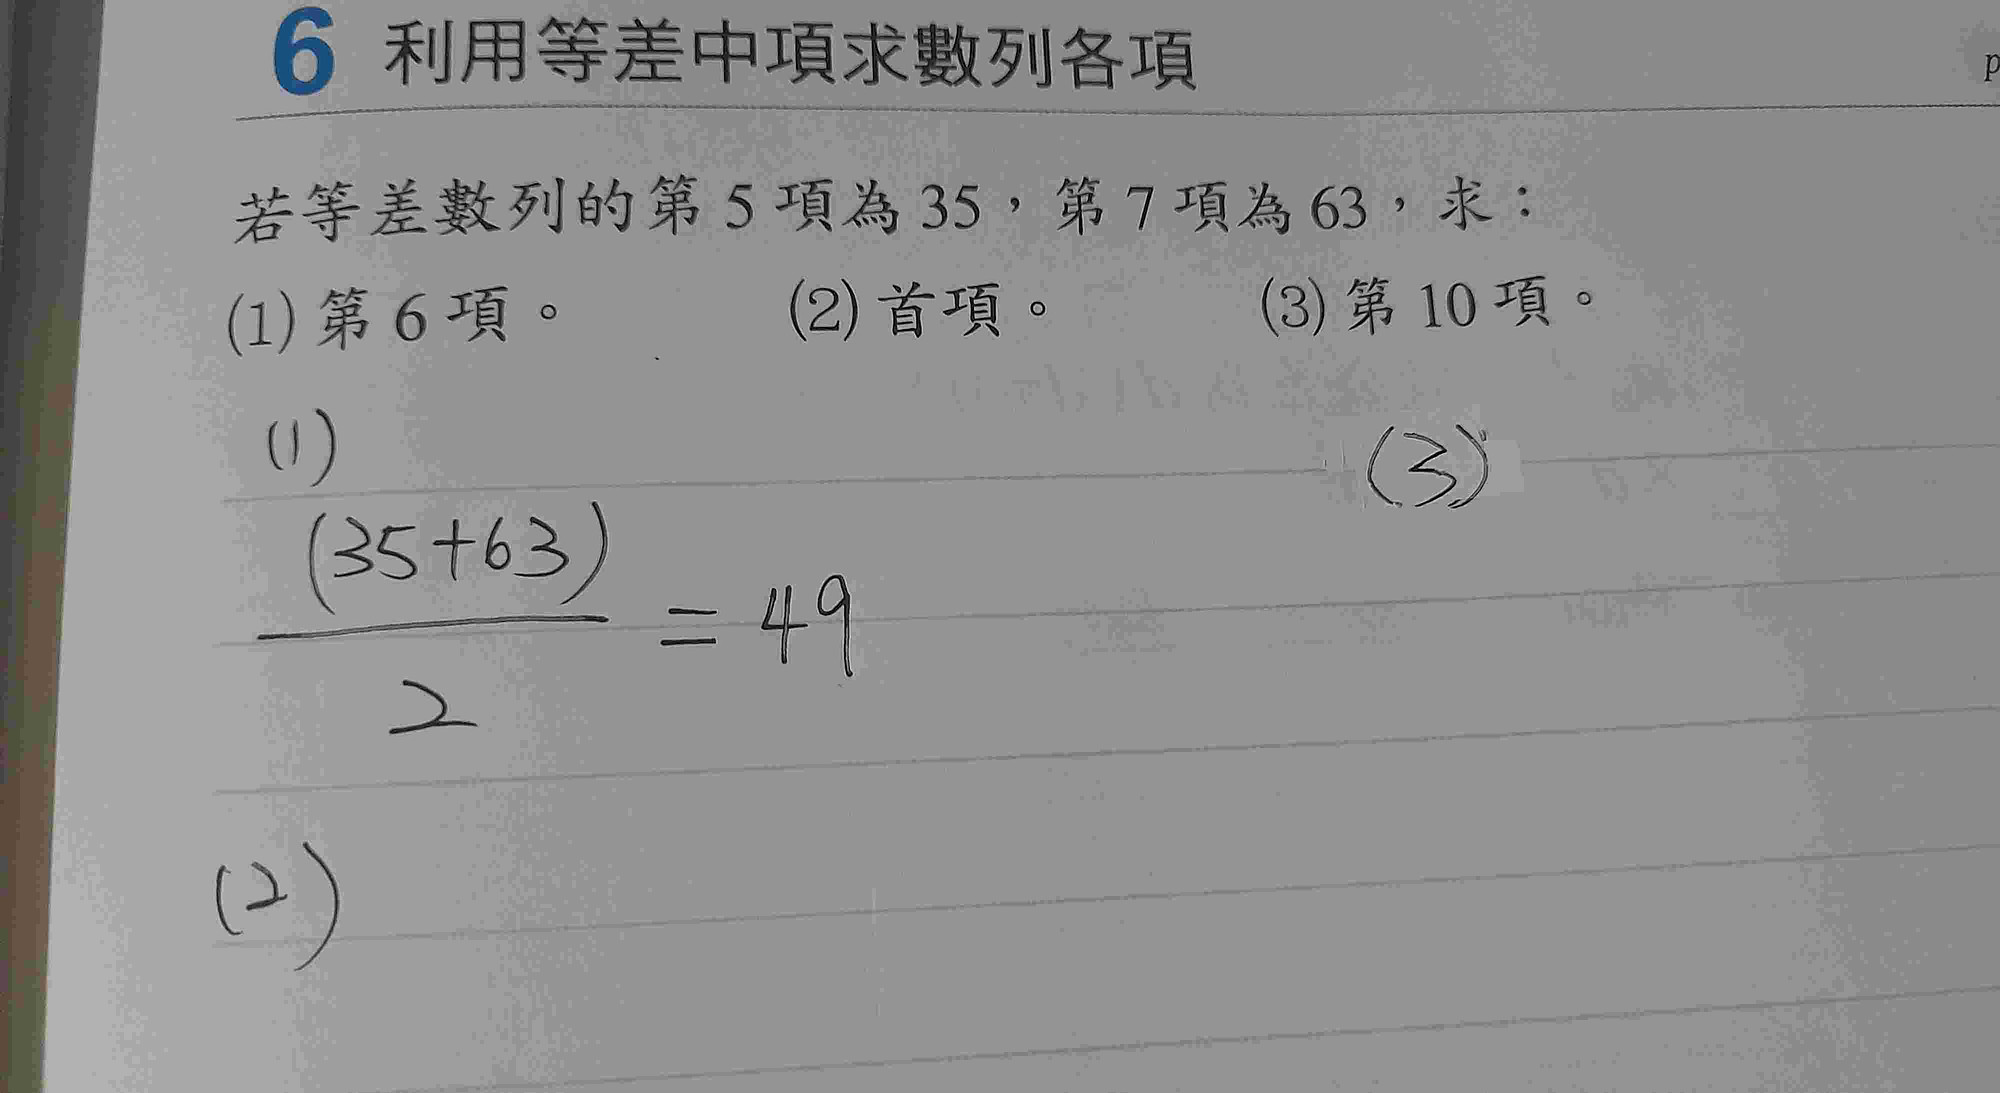 6 利用等差中項求數列各項
p
若等差數列的第 5 項為 35，第 7 項為 63，求：
(1) 第 6 項。 (2) 首項。 (3) 第 10 項。
(1)
(3)
(35+63)
= 49
2
(2)